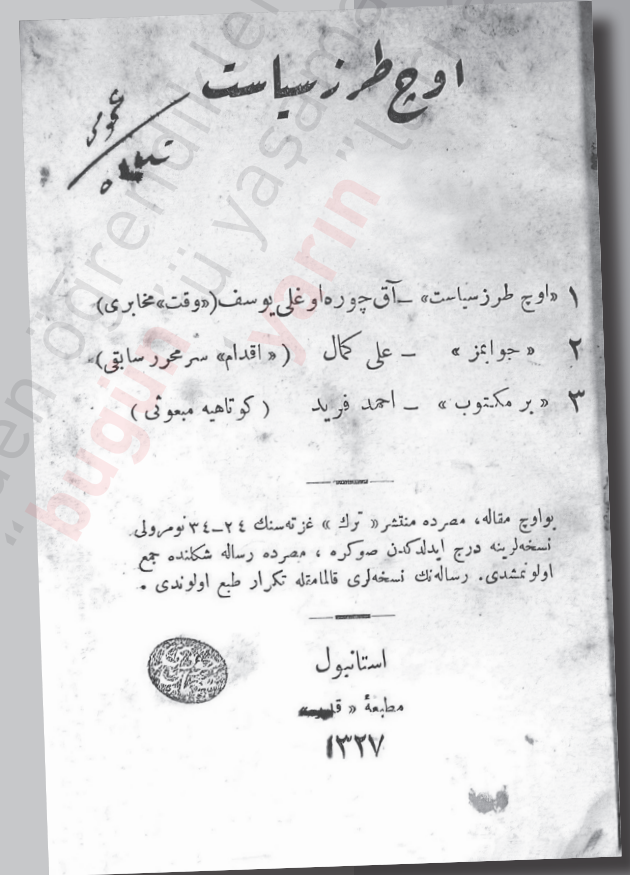 اوچ طرز سیاست
عمومی
١ «اوچ طرز سیاست» – آق چوره اوغلی یوسف («وقت» مخابری)
٢ « جوابمز » – علی کمال ( « اقدام» سر محرر سابقی)
٣ « بر مکتوب » – احمد فرید ( کوتاهیه مبعوثی )
بواوچ مقاله، مصرده منتشر « ترك » غزته‌سنك ٢٤–٣٤ نومرولی
نسخه‌لرینه درج ایدلدکدن صوکره ، مصرده رساله شکلنده جمع
اولونمشدی. رساله‌نك نسخه‌لری قالمامقله تکرار طبع اولوندی .
استانبول
مطبعهٔ «
١٣٢٧
"bugün yarın"